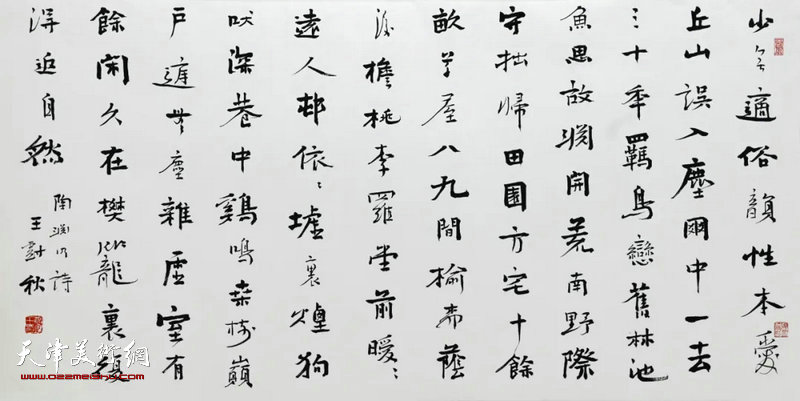 少無適俗韻性本愛
丘山誤入塵爾中一去
三十秊羈鳥戀舊林池
魚思故淵開荒南野際
守拙歸田園方宅十餘
畝草屋八九間榆柳蔭
後檐桃李羅堂前暖〻
遠人邨依〻墟裏煙狗
吠深巷中鷄鳴桑樹巔
戶庭無塵雜虛室有
餘閑久在樊籠裏復
得返自然
陶淵明詩
王尌秋
天津美術網
www.022meishu.com